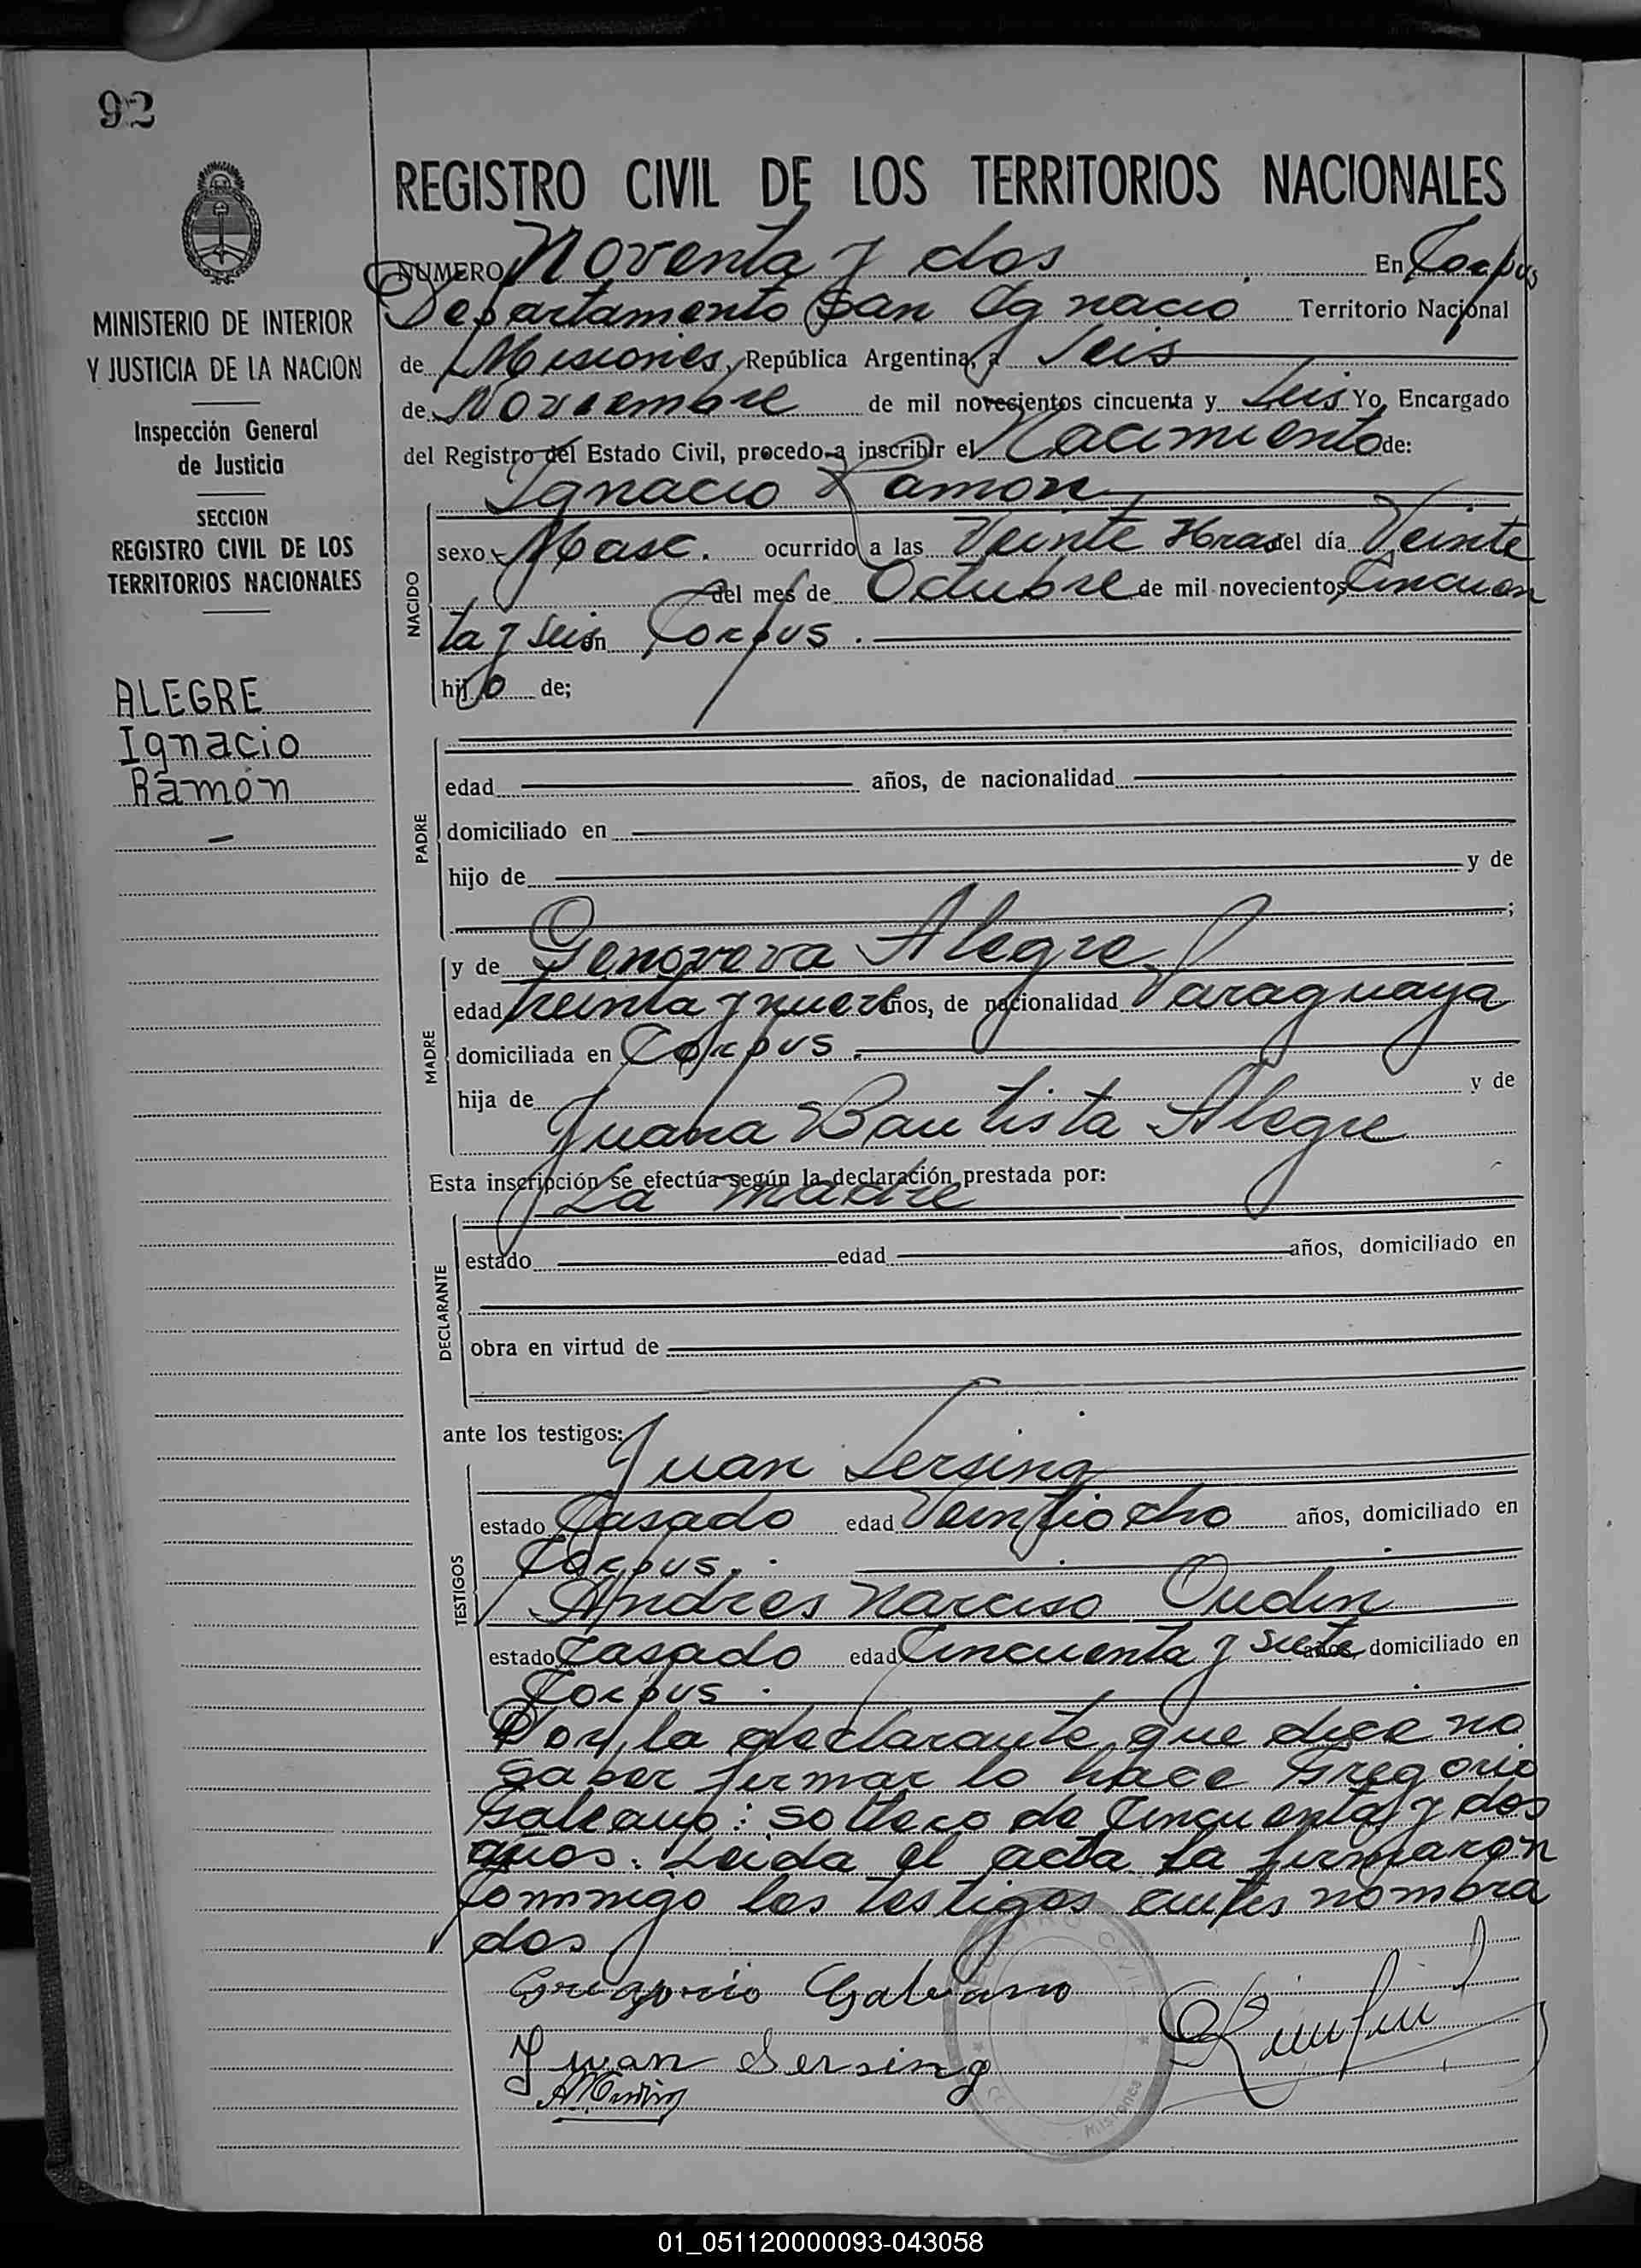 92
REGISTRO CIVIL DE LOS TERRITORIOS NACIONALES
NUMERO Noventa y dos En Corpus
Departamento San Ignacio Territorio Nacional
de Misiones, República Argentina, a Seis
de Noviembre de mil novecientos cincuenta y Seis Yo, Encargado
del Registro del Estado Civil, procedo a inscribir el Nacimiento de:
Ignacio Ramon
sexo Masc. ocurrido a las Veinte Horas del día Veinte
del mes de Octubre de mil novecientos Cincuen
ta y Seis en Corpus.
hijo de;
NACIDO
MINISTERIO DE INTERIOR
Y JUSTICIA DE LA NACION
Inspección General
de Justicia
SECCION
REGISTRO CIVIL DE LOS
TERRITORIOS NACIONALES
ALEGRE
Ignacio
Ramón
edad años, de nacionalidad
domiciliado en
hijo de y de
;
PADRE
y de Genoveva Alegre
edad treinta y nueve años, de nacionalidad Paraguaya
domiciliada en Corpus.
hija de y de
Juana Bautista Alegre
MADRE
Esta inscripción se efectúa según la declaración prestada por:
La madre
estado edad años, domiciliado en
obra en virtud de
DECLARANTE
ante los testigos:
Juan Sersing
estado Casado edad Veintiocho años, domiciliado en
Corpus.
Andres Narciso Oudin
estado Casado edad Cincuenta y siete años, domiciliado en
Corpus.
TESTIGOS
Por la declarante que dice no
saber firmar lo hace Gregorio
Galeano: soltero de Cincuenta y dos
años. Leida el acta la firmaron
conmigo los testigos antes nombra
dos
Gregorio Galeano
Juan Sersing
REGISTRO CIVIL
Misiones
01_051120000093-043058